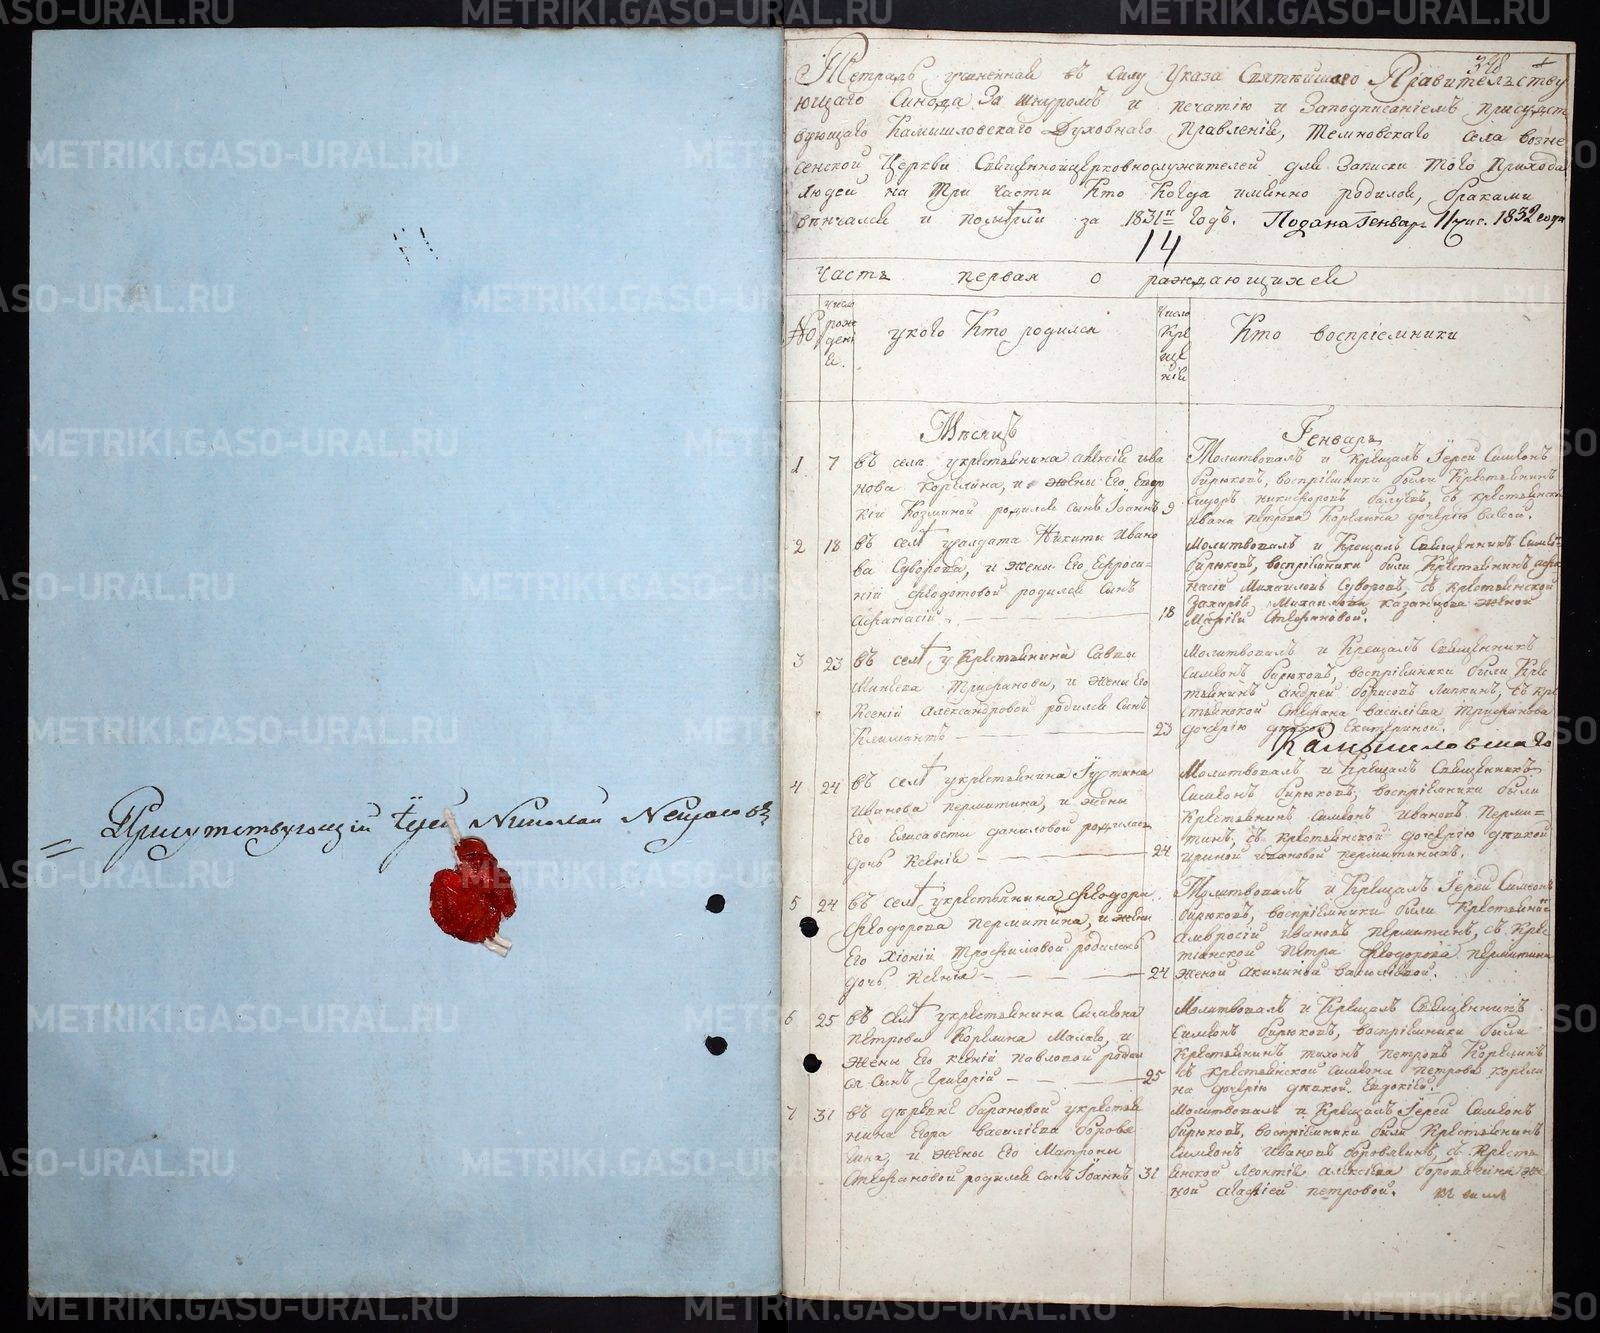 Присутствующій Іерей Николай
348
Тетрадь учиненная въ силу Указа Святѣйшаго Правительству
ющаго Синода За шнуромъ и печатію и Заподписаніемъ присудст
вующаго Камышловскаго Духовнаго Правленія, Темновскаго села возне
сенской Церкви Священноицерковнослужителей для Записки того Прихода
людей на Три части Кто Когда имянно родился, браками
вѣнчался и помѣрли за 1831й Годъ. Подана Генвар. 11 чис. 1832 года
14
Часть первая о раждающихся
№
число рожденія.
укого Кто родился
Число Крещенія
Кто воспріемники
Мѣсяцъ
Генварь
1 7 въ селѣ укрестьянина Алексія ива
нова Корелина, и жены Его Евдо
кіи Козминой родился сынъ Іоаннъ 9
Молитвовалъ и Крещалъ Іерей Симеонъ
бирюковъ, воспріемники были Крестьянинъ
Сидоръ никифоровъ, съ крестьянск
ивана петрова Корелина дочерью
2 18 въ селѣ усалдата Никиты Ивано
ва Суворова, и жены Его Ефроси=
ніи Ѳедотовой родился сынъ
Афанасій 18
Молитвовалъ и Крещалъ Священникъ Симео=
бирюковъ, воспріемники были Крестьянинъ афа
насій Михаиловъ Суворовъ, съ крестьянской
Захарія Михаилова казанцова женой
Маріей Стефановой.
3 23 въ селѣ у Крестьянина Саввы
Минеева Трифанова, и жены Его
Ксеніи Александровой родился Сынъ
Климантъ 23
Молитвовалъ и Крещалъ Священникъ
Симеонъ бирюковъ, воспріемники были Кре
тьянинъ андрей борисовъ Липкинъ, съ кре
стьянской Стефана василіева Трифанова
дочерію дѣвкой Екатериной.
Камышловшаго
4 24 въ селѣ укрестьянина Іустина
Иванова пермитина, и жены
Его Елисаветы даниловой родилась
дочь Ксенія 24
Молитвовалъ и Крещалъ Священникъ
Симеонъ бирюковъ, воспріемники были
Крестьянинъ симеонъ ивановъ Перми=
тинъ, съ крестьянской дочерію дѣвкой
ириной ивановой пермитиныхъ.
5 24 въ селѣ укрестьянина Ѳеодора
Ѳеодорова пермитина, и жены
Его Хіоніи Трофимовой родилась
дочь Ксенія 24
Молитвовалъ и Крещалъ Іерей Симеонъ
бирюковъ, воспріемники были Крестьянинъ
амвросій ивановъ пермитинъ, съ Крес
тіанской Петра Ѳеодорова пермитина
женой акилиной василіевой.
6 25 въ селѣ укрестьянина Симеона
петрова Корелина Малаго, и
жены Его Ксеніи павловой родил
ся сынъ Григорій 25
Молитвовалъ и Крещалъ Священникъ
Симеонъ бирюковъ, воспріемники были
Крестьянинъ тихонъ петровъ Корелинъ
съ крестьянской симеона петрова корели
на дочерію дѣвкой Евдокіей.
7 31 въ деревнѣ барановой укрестья
нина Егора василіева Борове
гина, и жены Его Матроны
Стефановой родился сынъ Іоаннъ 31
Молитвовалъ и Крещалъ Іерей Симеонъ
бирюковъ, воспріемники были Крестьянинъ
Симеонъ ивановъ, съ Кресть
янской Леонтія алексіева же
ной агафіей петровой.
METRIKI.GASO-URAL.RU